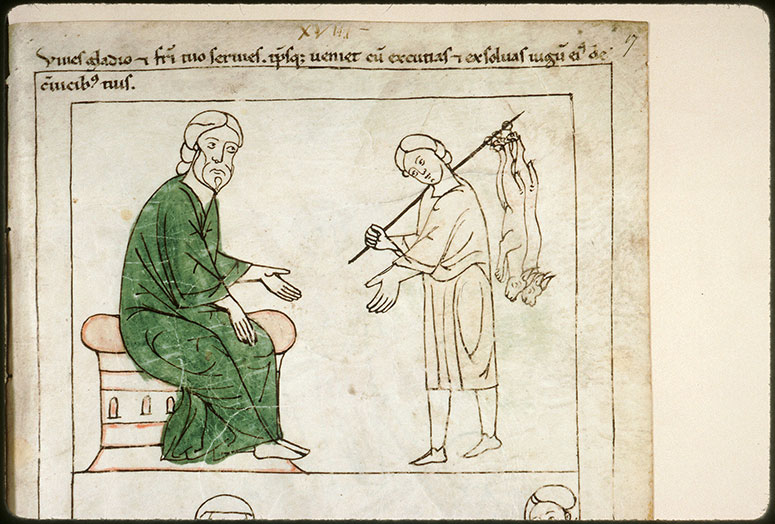 XVII
17
Vives gladio ⁊ fr̄i tuo servies. ip̄sq; veniet cū excutias ⁊ exsolvas iugū ei⁹ de
c̄vicib⁹ tuis.